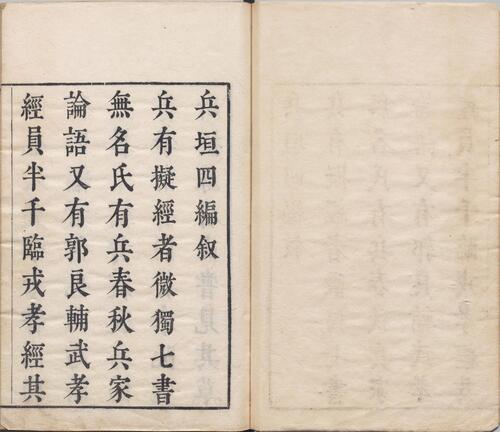 兵垣四編叙
兵有擬經者微獨七書
無名氏有兵春秋兵家
論語又有郭良輔武孝
經員半千臨戎孝經其